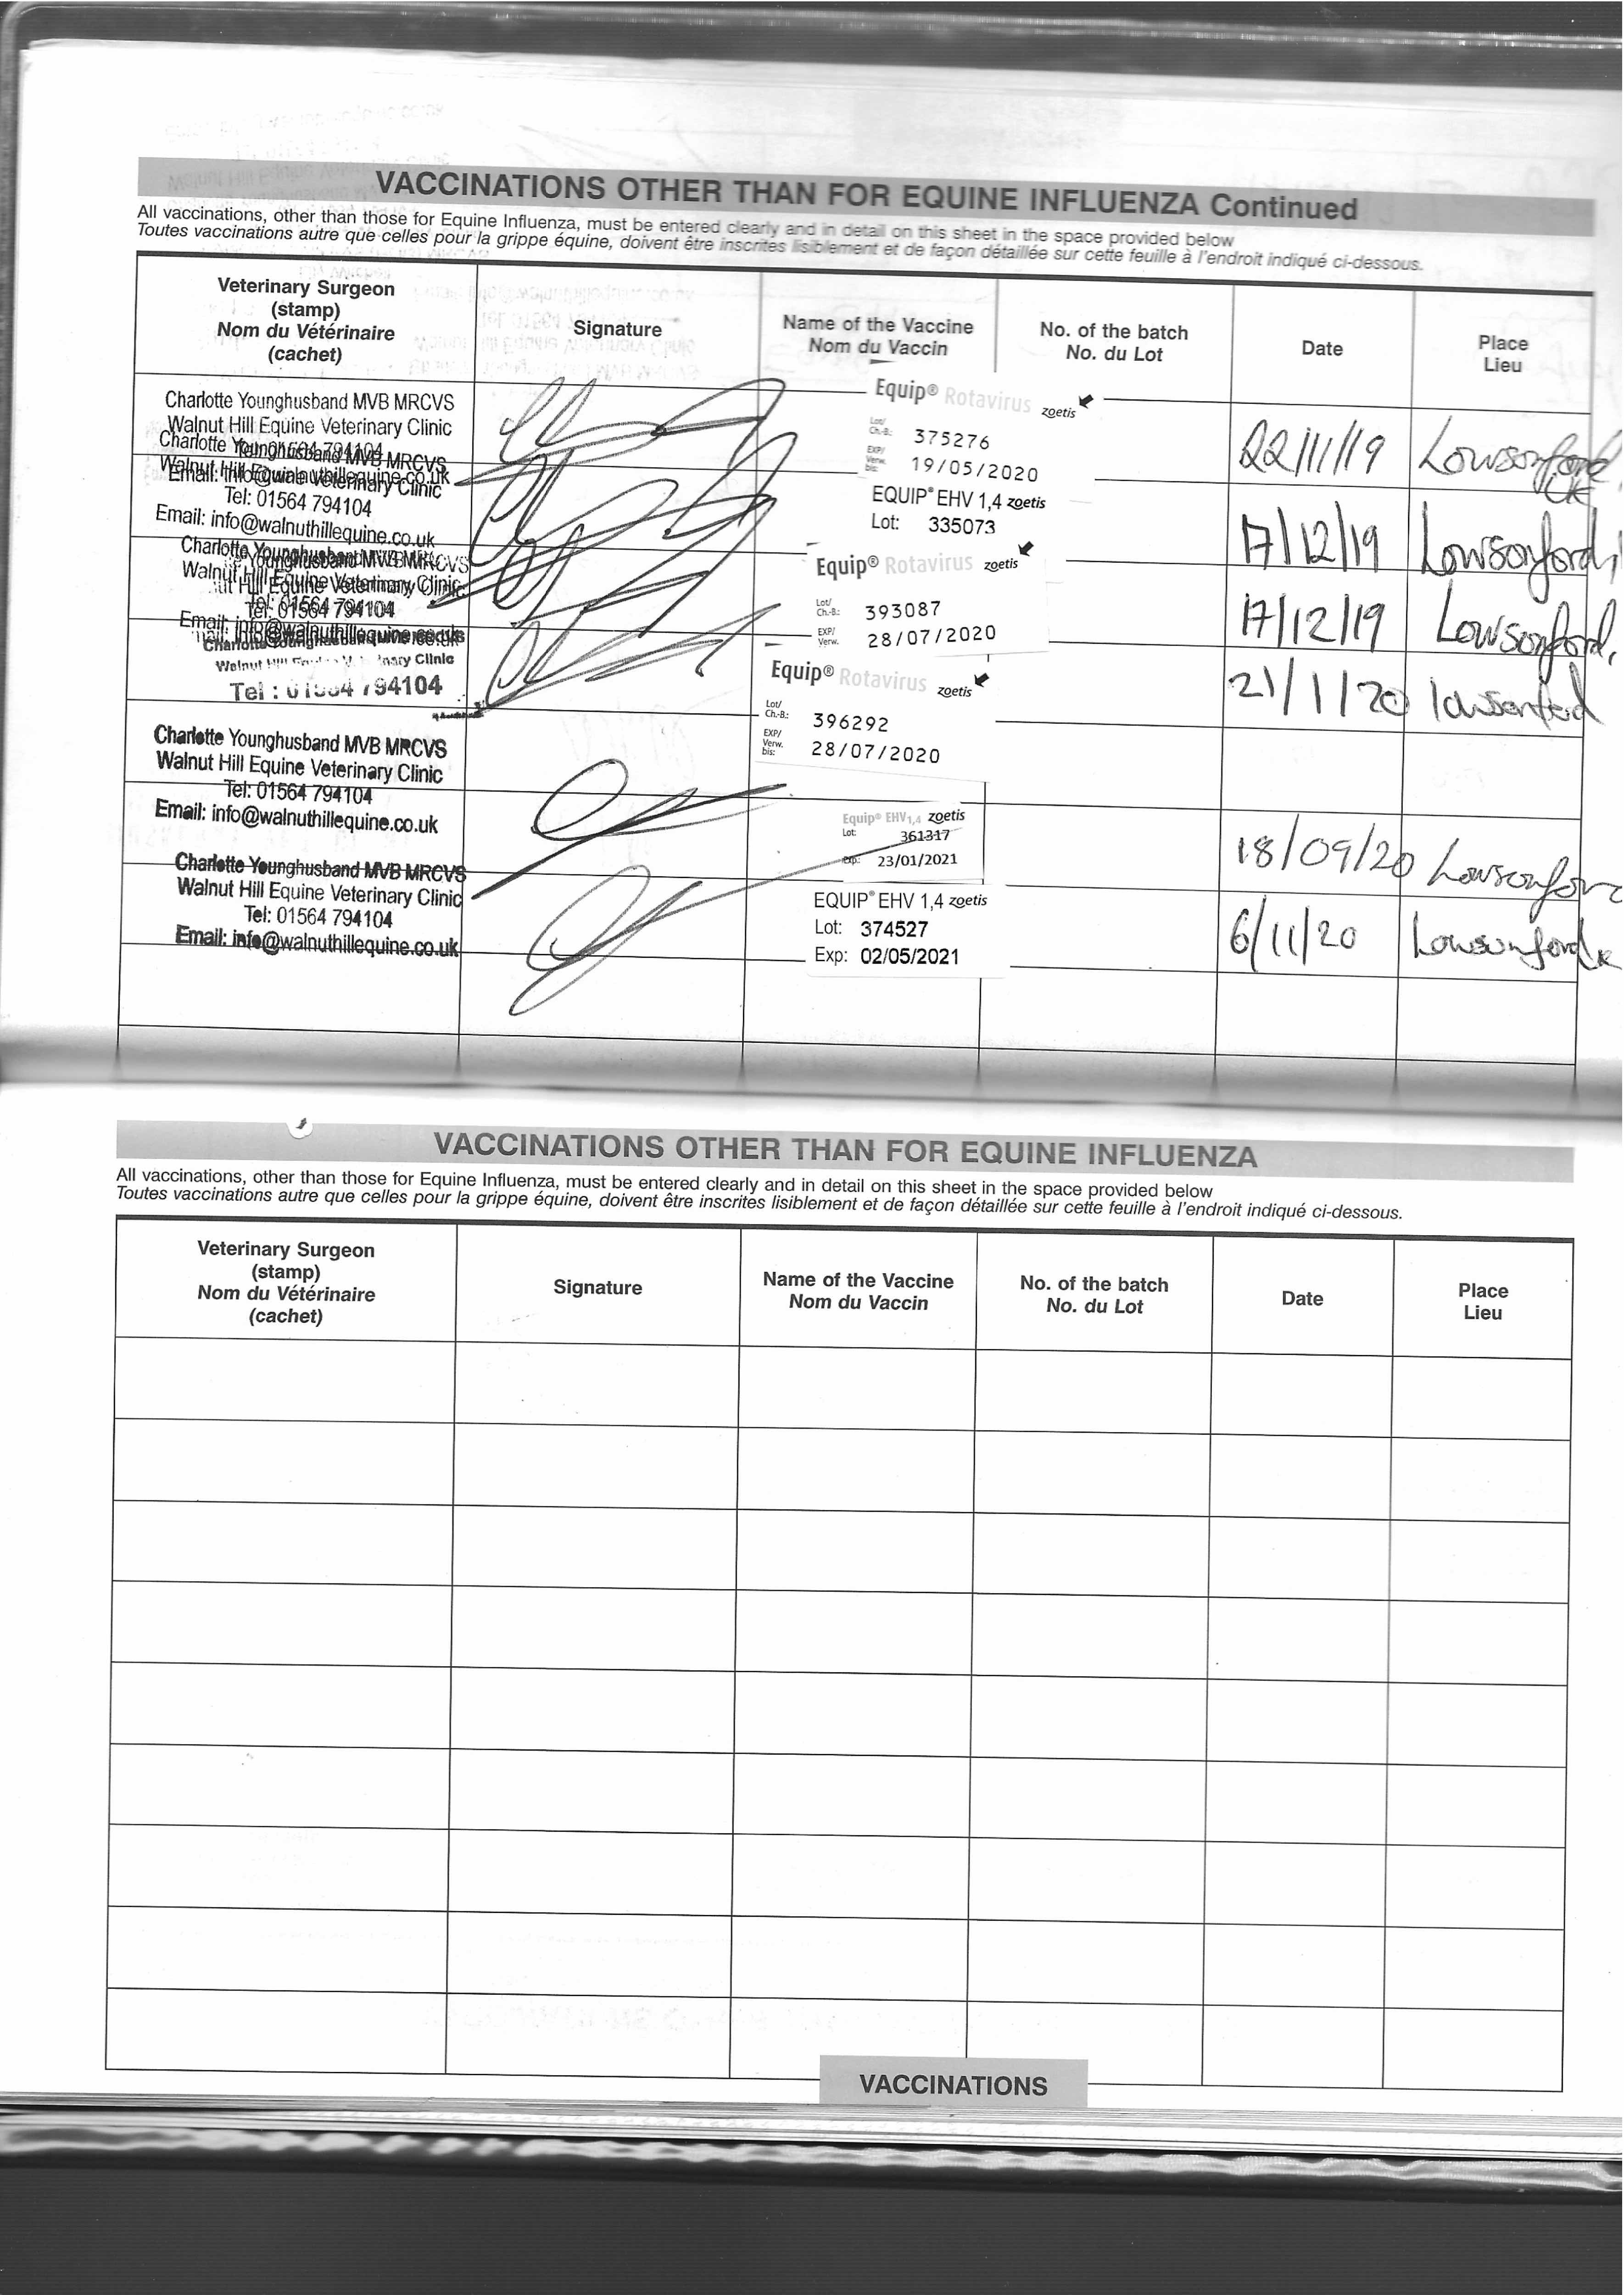 VACCINATIONS OTHER THAN FOR EQUINE INFLUENZA Continued
All vaccinations, other than those for Equine Influenza, must be entered clearly and in detail on this sheet in the space provided below
Toutes vaccinations autre que celles pour la grippe équine, doivent être inscrites lisiblement et de façon détaillée sur cette feuille à l'endroit indiqué ci-dessous.
Veterinary Surgeon
(stamp)
Nom du Vétérinaire
(cachet)
Signature
Name of the Vaccine
Nom du Vaccin
No. of the batch
No. du Lot
Date
Place
Lieu
Charlotte Younghusband MVB MRCVS
Walnut Hill Equine Veterinary Clinic
Tel: 01564 794104
Email: info@walnuthillequine.co.uk
Equip® Rotavirus zoetis
Lot/
Ch.-B.: 375276
EXP/
Verw.
bis: 19/05/2020
22/11/19
Lowsonford
UK
Charlotte Younghusband MVB MRCVS
Walnut Hill Equine Veterinary Clinic
Tel: 01564 794104
Email: info@walnuthillequine.co.uk
EQUIP® EHV 1,4 zoetis
Lot: 335073
17/12/19
Lowsonford,
Charlotte Younghusband MVB MRCVS
Walnut Hill Equine Veterinary Clinic
Tel: 01564 794104
Email: info@walnuthillequine.co.uk
Equip® Rotavirus zoetis
Lot/
Ch.-B.: 393087
EXP/
Verw. 28/07/2020
17/12/19
Lowsonford,
Charlotte Younghusband MVB MRCVS
Walnut Hill Clinic
Tel : 01564 794104
Equip® Rotavirus zoetis
Lot/
Ch.-B.: 396292
EXP/
Verw.
bis: 28/07/2020
21/1/20
lowsonford
Charlotte Younghusband MVB MRCVS
Walnut Hill Equine Veterinary Clinic
Tel: 01564 794104
Email: info@walnuthillequine.co.uk
Equip® EHV1,4 zoetis
Lot: 361317
exp: 23/01/2021
18/09/20
Lowsonford
Charlotte Younghusband MVB MRCVS
Walnut Hill Equine Veterinary Clinic
Tel: 01564 794104
Email: info@walnuthillequine.co.uk
EQUIP® EHV 1,4 zoetis
Lot: 374527
Exp: 02/05/2021
6/11/20
Lowsonford
VACCINATIONS OTHER THAN FOR EQUINE INFLUENZA
All vaccinations, other than those for Equine Influenza, must be entered clearly and in detail on this sheet in the space provided below
Toutes vaccinations autre que celles pour la grippe équine, doivent être inscrites lisiblement et de façon détaillée sur cette feuille à l'endroit indiqué ci-dessous.
Veterinary Surgeon
(stamp)
Nom du Vétérinaire
(cachet)
Signature
Name of the Vaccine
Nom du Vaccin
No. of the batch
No. du Lot
Date
Place
Lieu
VACCINATIONS